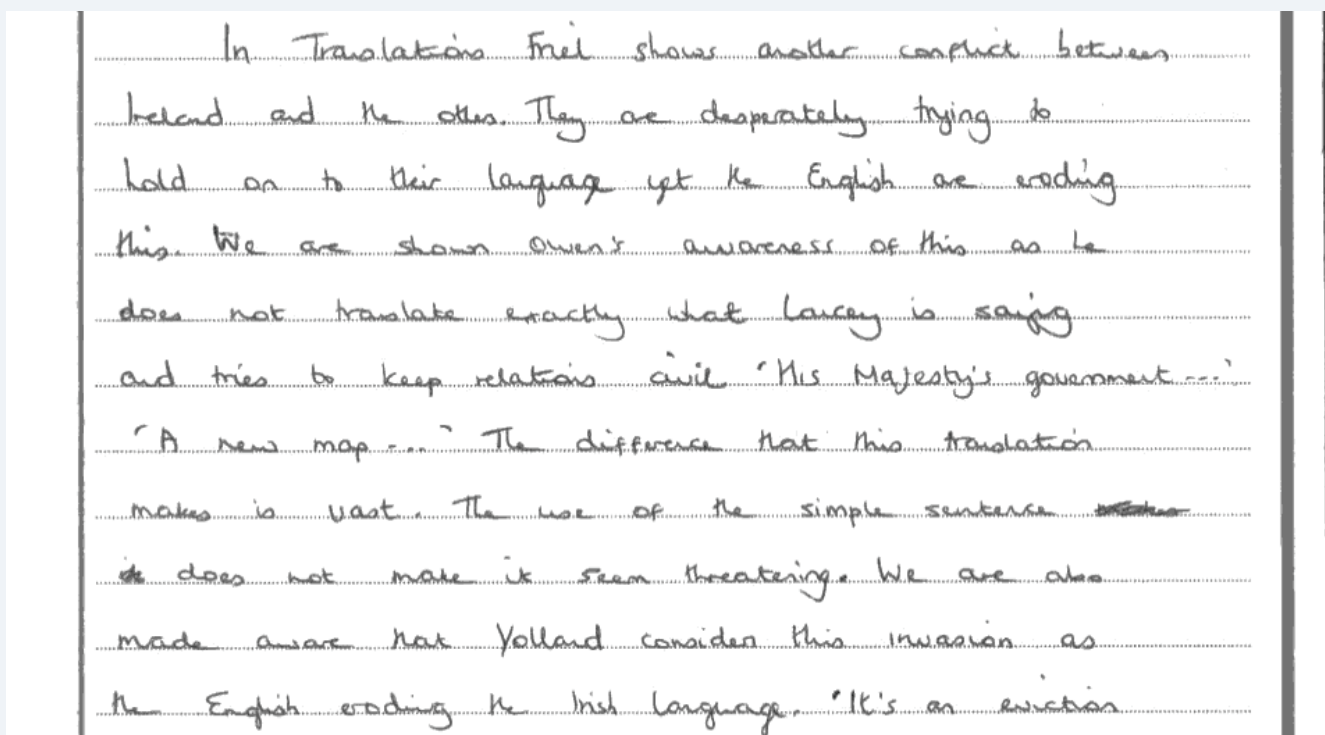 In Translations Friel shows another conflict between
Ireland and the other. They are desperately trying to
hold on to their language yet the English are eroding
this. We are shown Owen's awareness of this as he
does not translate exactly what Lancey is saying
and tries to keep relations civil 'His Majesty's government ...'
'A new map ....' The difference that this translation
makes is vast. The use of the simple sentence
does not make it seem threatening. We are also
made aware that Yolland considers this invasion as
the English eroding the Irish language. 'It's an eviction